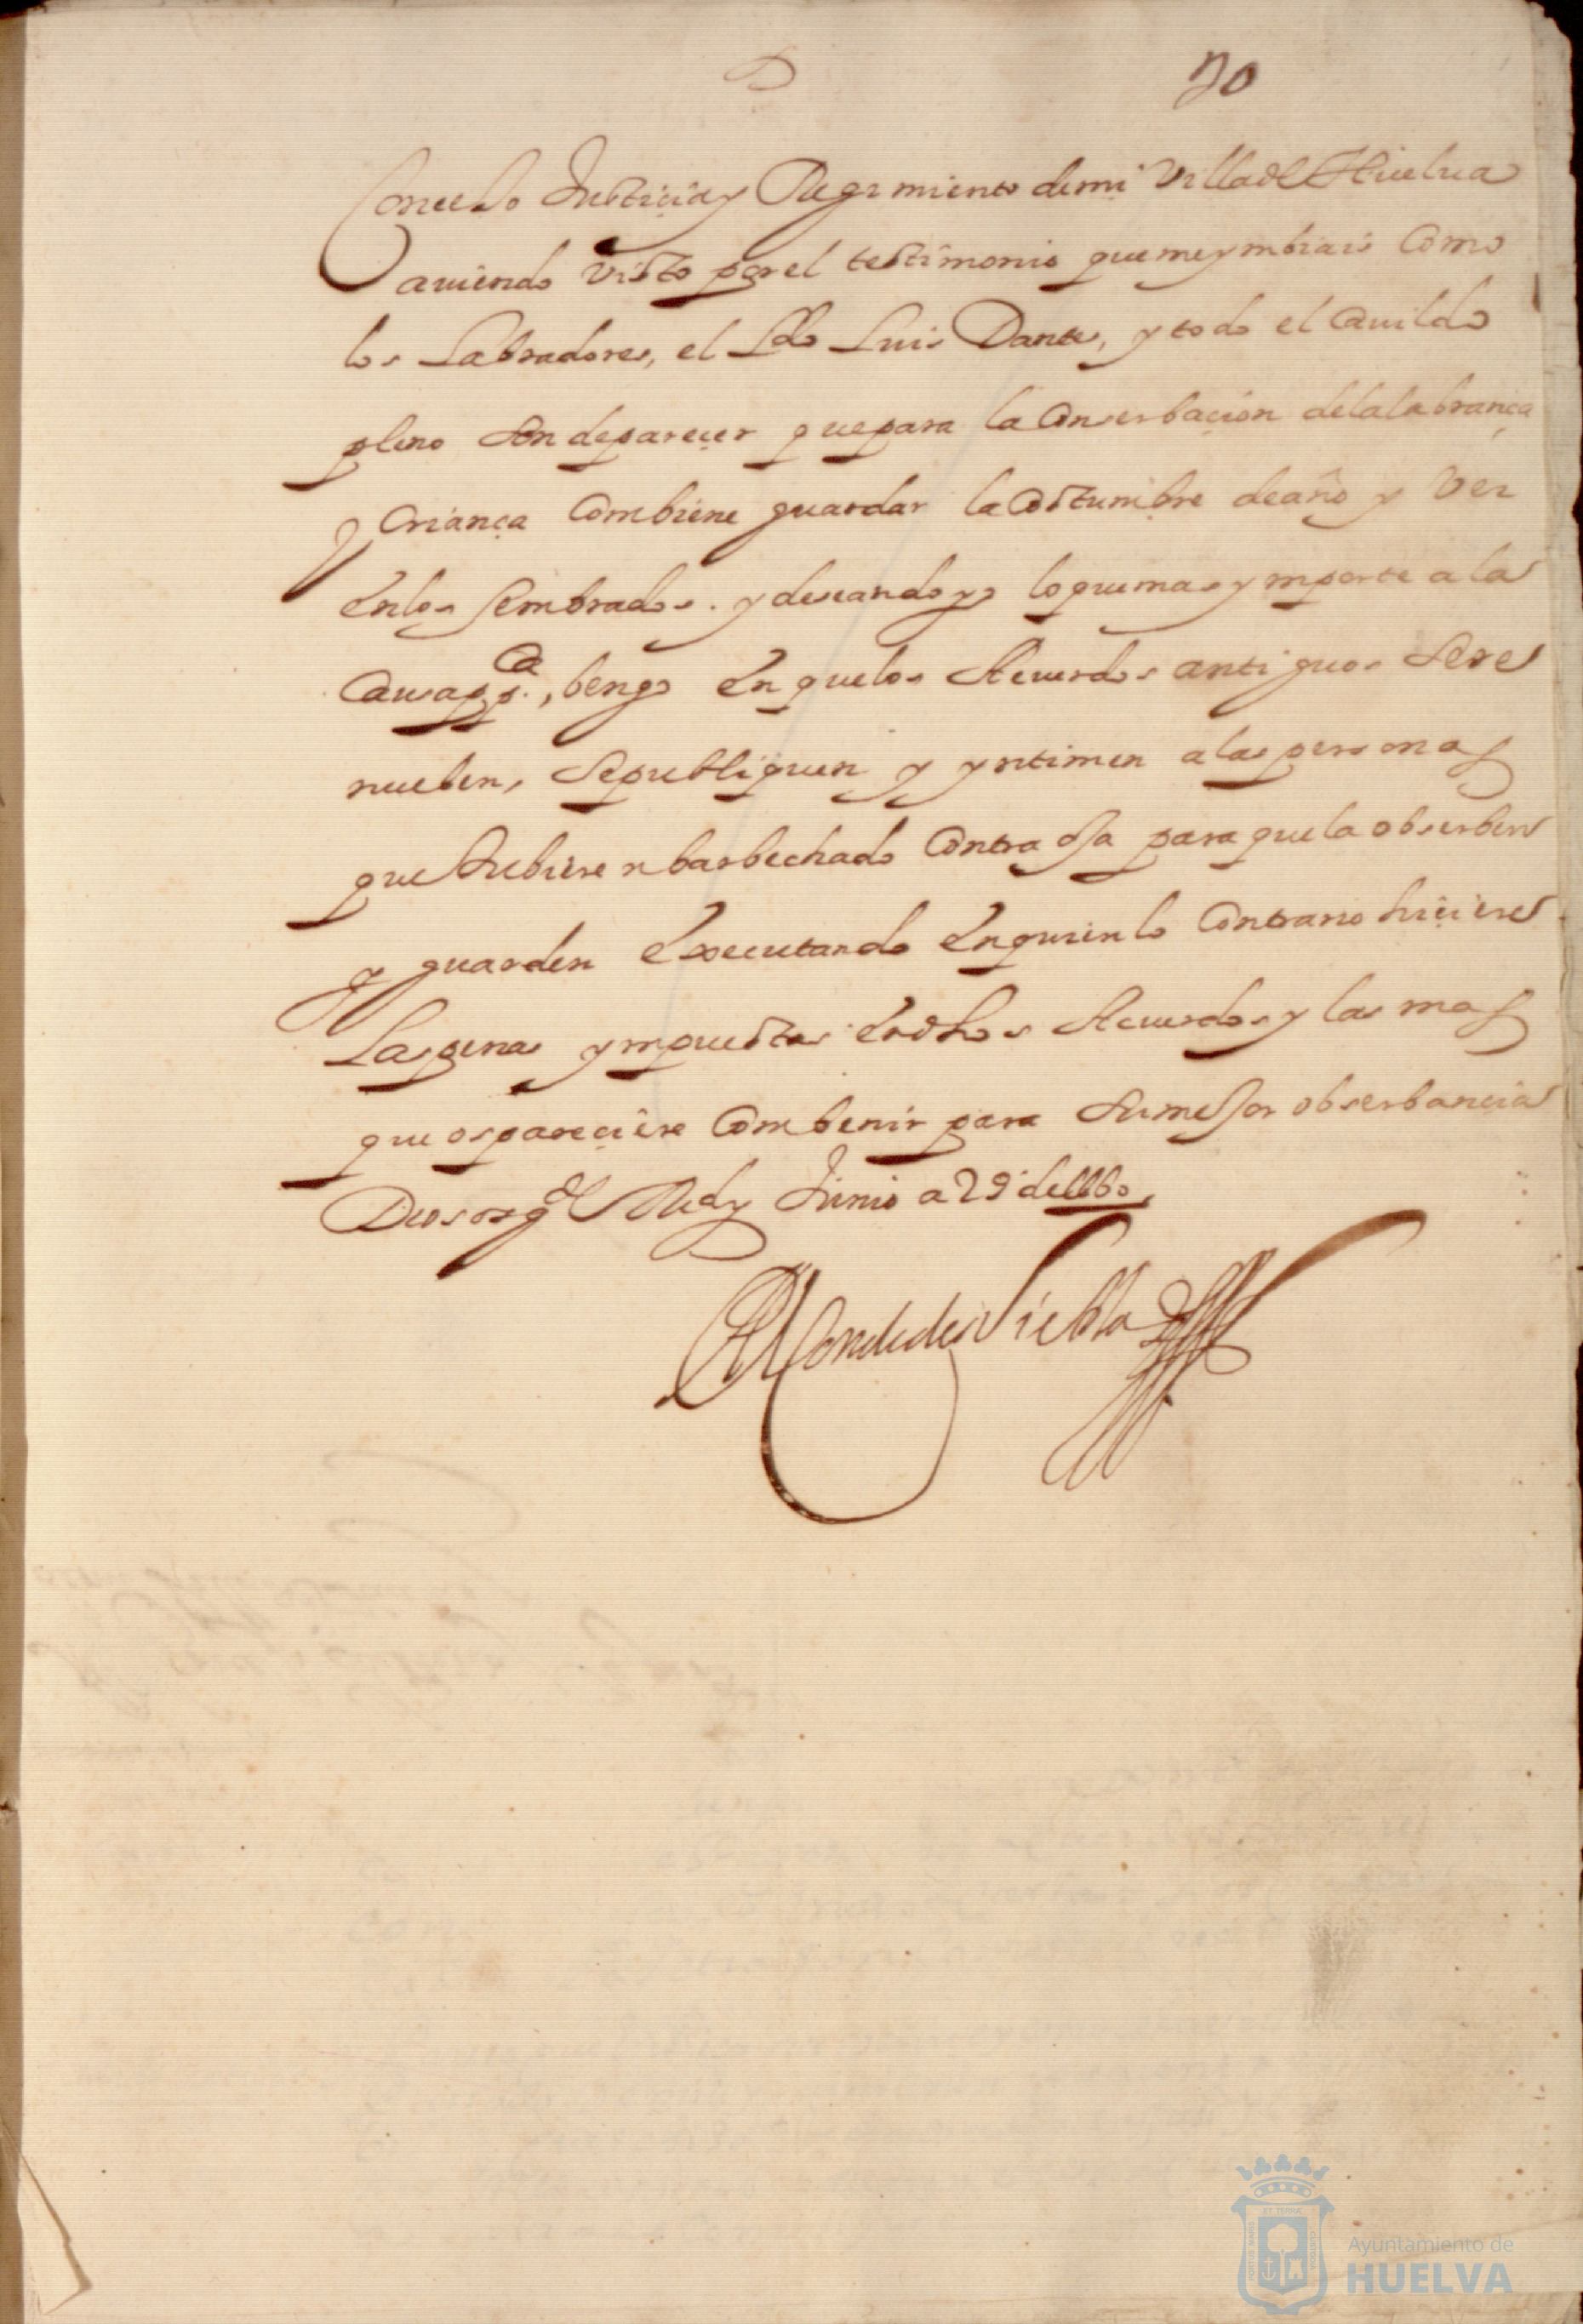 70
Concejo Justicia y Regimiento de mi Villa de Huelua
auiendo visto por el testimonio que me ymbiais como
los Labradores, el Ldo Luis Dantes, y todo el Cauildo
pleno son de parecer que para la Conserbaçion de la labrança
y Criança Combiene guardar la Costumbre de año y vez
en los sembrados. y deseando yo lo que mas ymporte a la
Causa pp.ca, bengo en que los Acuerdos antiguos se re
nueben, se publiquen y yntimen a las personas
que hubieren barbechado Contra ella para que la obserben
y guarden executando en quien lo Contrario hiçiere
Las penas ympuestas en dhos Acuerdos y las mas
que os pareçiere Combenir para su mejor obserbancia
Dios os g.e Md y Junio a 29 de 1660
El Conde de Niebla
Ayuntamiento de
HUELVA